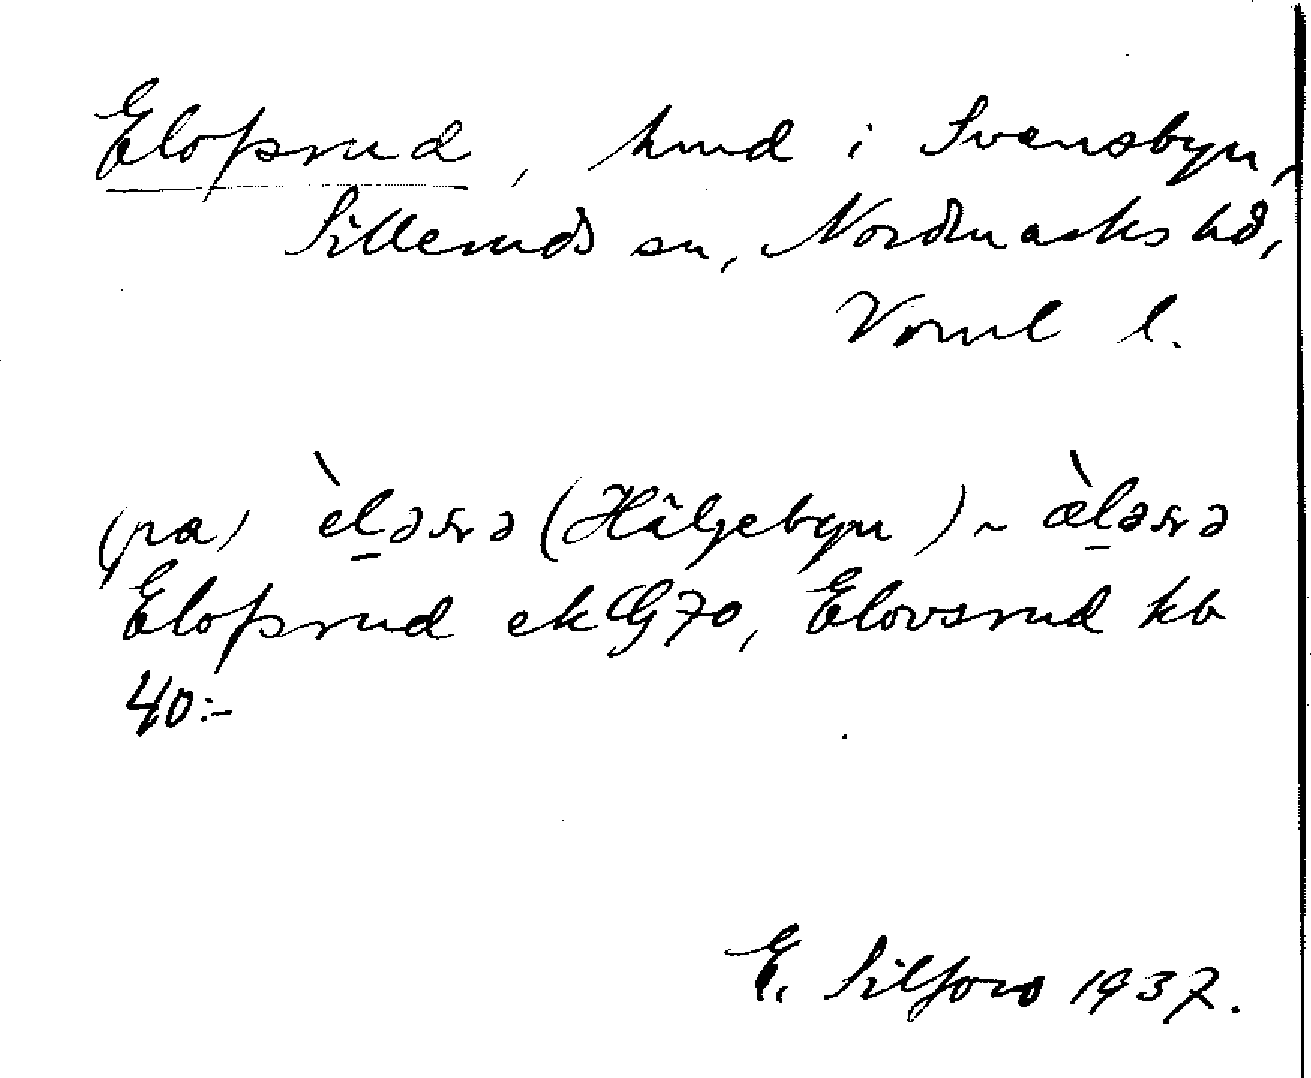 Elofsrud, hmd i Svensbyn,
Silleruds sn, Nordmarks hd,
Värml l.
(på) èləsrə (Häljebyn) ~ æ̀ləsrə
Elofsrud ek G70, Elovsrud kb
40:-
E. Silfors 1937.